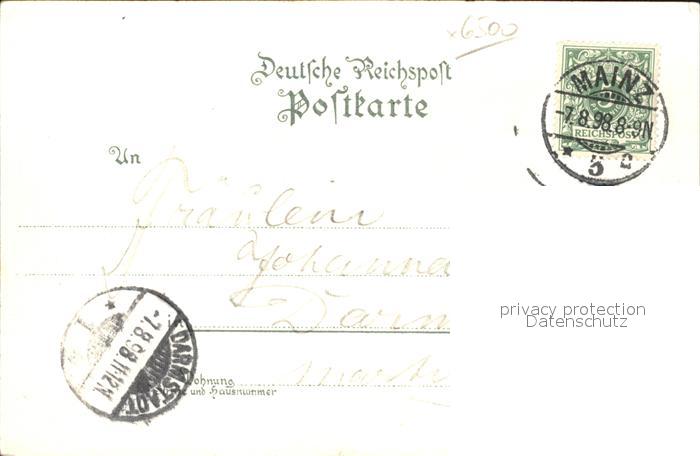 x6500
Deutsche Reichspost
Postkarte
MAINZ
-7.8.98.8-9N
REICHSPOST
* 5 c
An
Fräulein
Johanna
Darm
privacy protection
Datenschutz
1 *
-7.8.98.11-12N.
DARMSTADT
ohnung
und Hausnummer